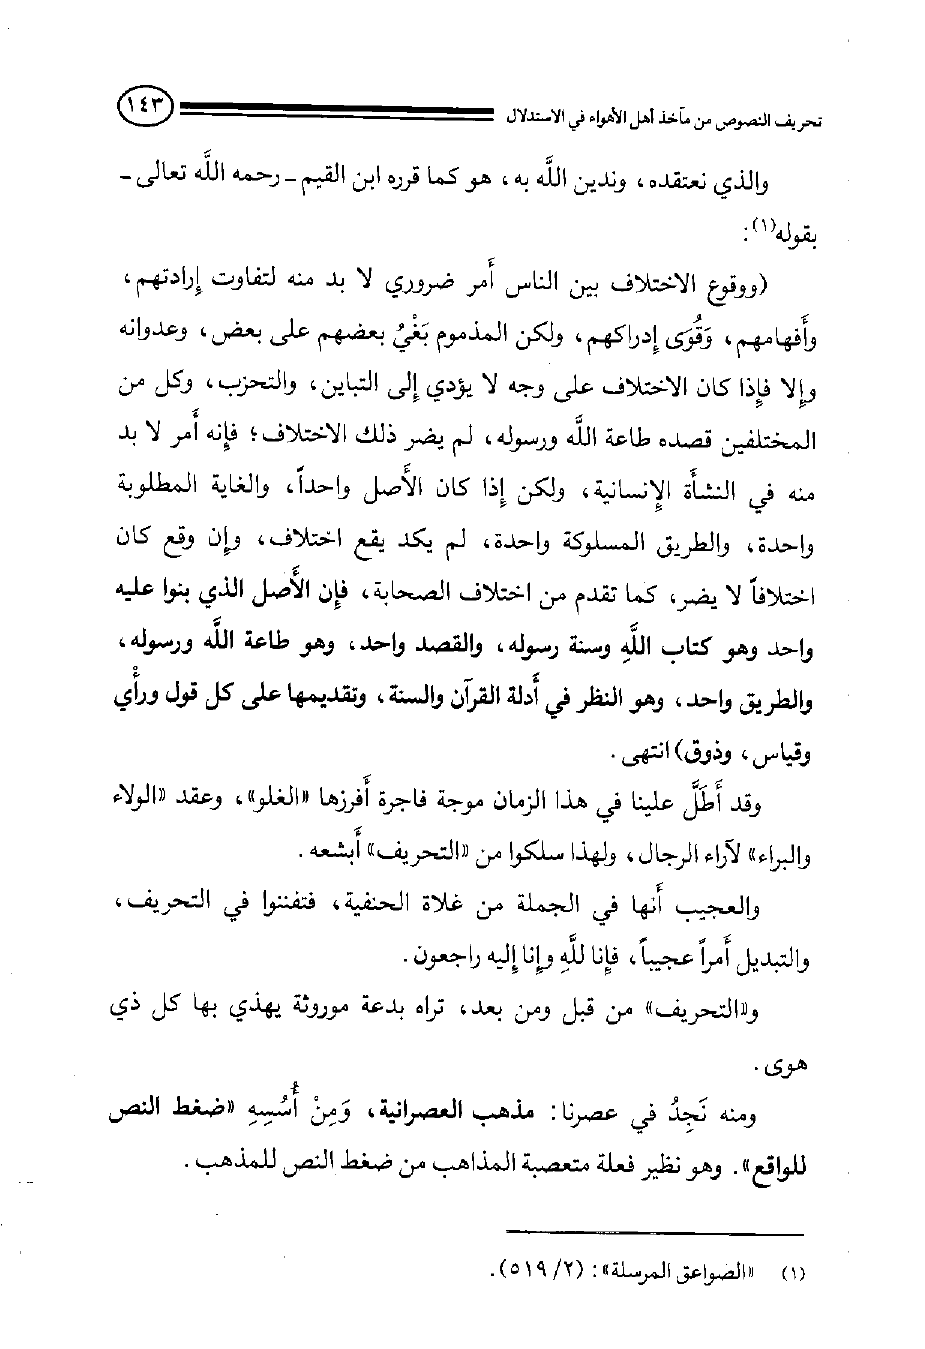 تحريف النصوص من مآخذ أهل الأهواء في الاستدلال ١٤٣
والذي نعتقده، وندين اللَّه به، هو كما قرره ابن القيم ـ رحمه اللَّه تعالى ـ
بقوله(١):
(ووقوع الاختلاف بين الناس أمر ضروري لا بد منه لتفاوت إرادتهم،
وأفهامهم، وَقُوَى إدراكهم، ولكن المذموم بَغْيُ بعضهم على بعض، وعدوانه
وإلا فإذا كان الاختلاف على وجه لا يؤدي إلى التباين، والتحزب، وكل من
المختلفين قصده طاعة اللَّه ورسوله، لم يضر ذلك الاختلاف؛ فإنه أمر لا بد
منه في النشأة الإنسانية، ولكن إذا كان الأصل واحداً، والغاية المطلوبة
واحدة، والطريق المسلوكة واحدة، لم يكد يقع اختلاف، وإن وقع كان
اختلافاً لا يضر، كما تقدم من اختلاف الصحابة، فإن الأصل الذي بنوا عليه
واحد وهو كتاب اللَّهِ وسنة رسوله، والقصد واحد، وهو طاعة اللَّه ورسوله،
والطريق واحد، وهو النظر في أدلة القرآن والسنة، وتقديمها على كل قول ورأي
وقياس، وذوق) انتهى.
وقد أَطَلَّ علينا في هذا الزمان موجة فاجرة أفرزها «الغلو»، وعقد «الولاء
والبراء» لآراء الرجال، ولهذا سلكوا من «التحريف» أبشعه.
والعجيب أنها في الجملة من غلاة الحنفية، فتفننوا في التحريف،
والتبديل أمراً عجيباً، فإنا للَّهِ وإنا إليه راجعون.
و«التحريف» من قبل ومن بعد، تراه بدعة موروثة يهذي بها كل ذي
هوى.
ومنه نَجِدُ في عصرنا: مذهب العصرانية، وَمِنْ أُسُسِهِ «ضغط النص
للواقع». وهو نظير فعلة متعصبة المذاهب من ضغط النص للمذهب.
(١) «الصواعق المرسلة»: (٢/ ٥١٩).